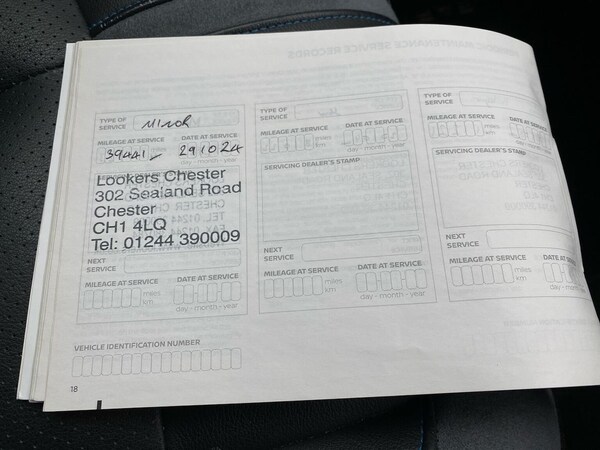 TYPE OF SERVICE MINOR
MILEAGE AT SERVICE DATE AT SERVICE
39441 miles km 291024 day - month - year
Lookers Chester
302 Sealand Road
Chester
CH1 4LQ
Tel: 01244 390009
NEXT SERVICE
MILEAGE AT SERVICE DATE AT SERVICE
miles km day - month - year
TYPE OF SERVICE
MILEAGE AT SERVICE DATE AT SERVICE
miles km day - month - year
SERVICING DEALER'S STAMP
NEXT SERVICE
MILEAGE AT SERVICE DATE AT SERVICE
miles km day - month - year
TYPE OF SERVICE
MILEAGE AT SERVICE DATE AT
miles km day - month
SERVICING DEALER'S STAMP
NEXT SERVICE
MILEAGE AT SERVICE DATE AT
miles km day - mon
VEHICLE IDENTIFICATION NUMBER
18